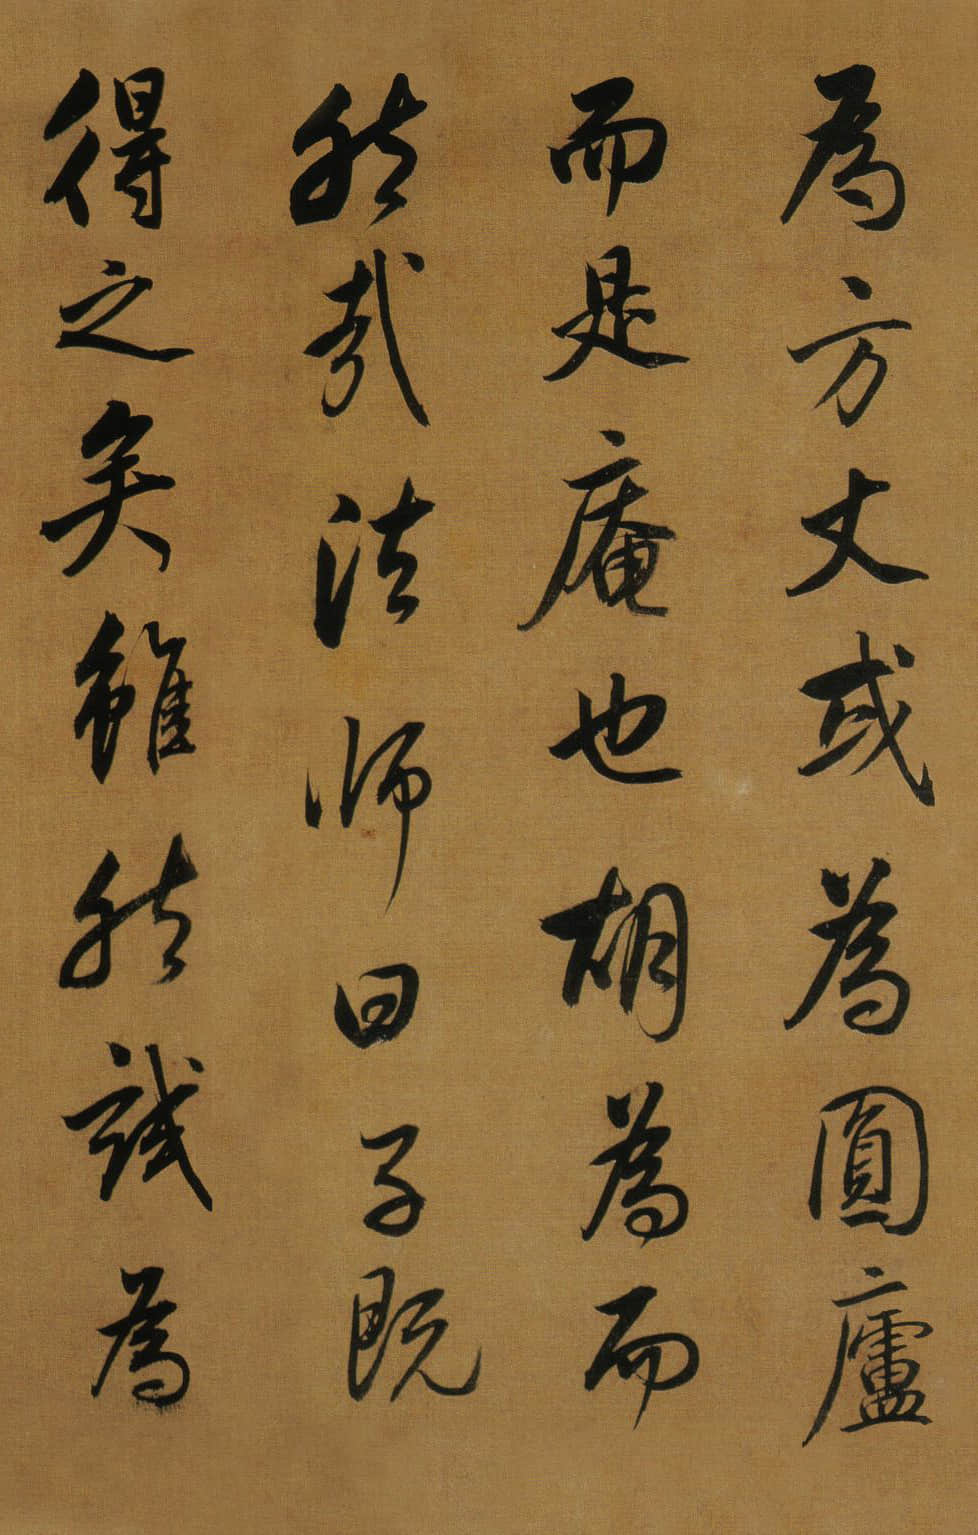 為方丈或為圓廬
而是庵也胡為而
然哉法師曰子既
得之矣雖然試為